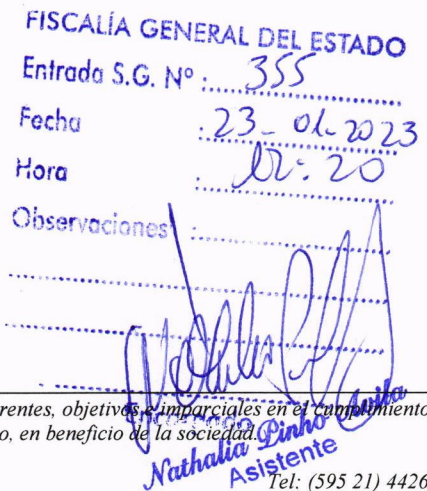 FISCALÍA GENERAL DEL ESTADO
Entrada S.G. Nº : 355
Fecha : 23-01-2023
Hora : 12:20
Observaciones :
rentes, objetivos e imparciales en el cumplimiento
o, en beneficio de la sociedad.
Nathalia Pinho
Asistente
Tel: (595 21) 4426